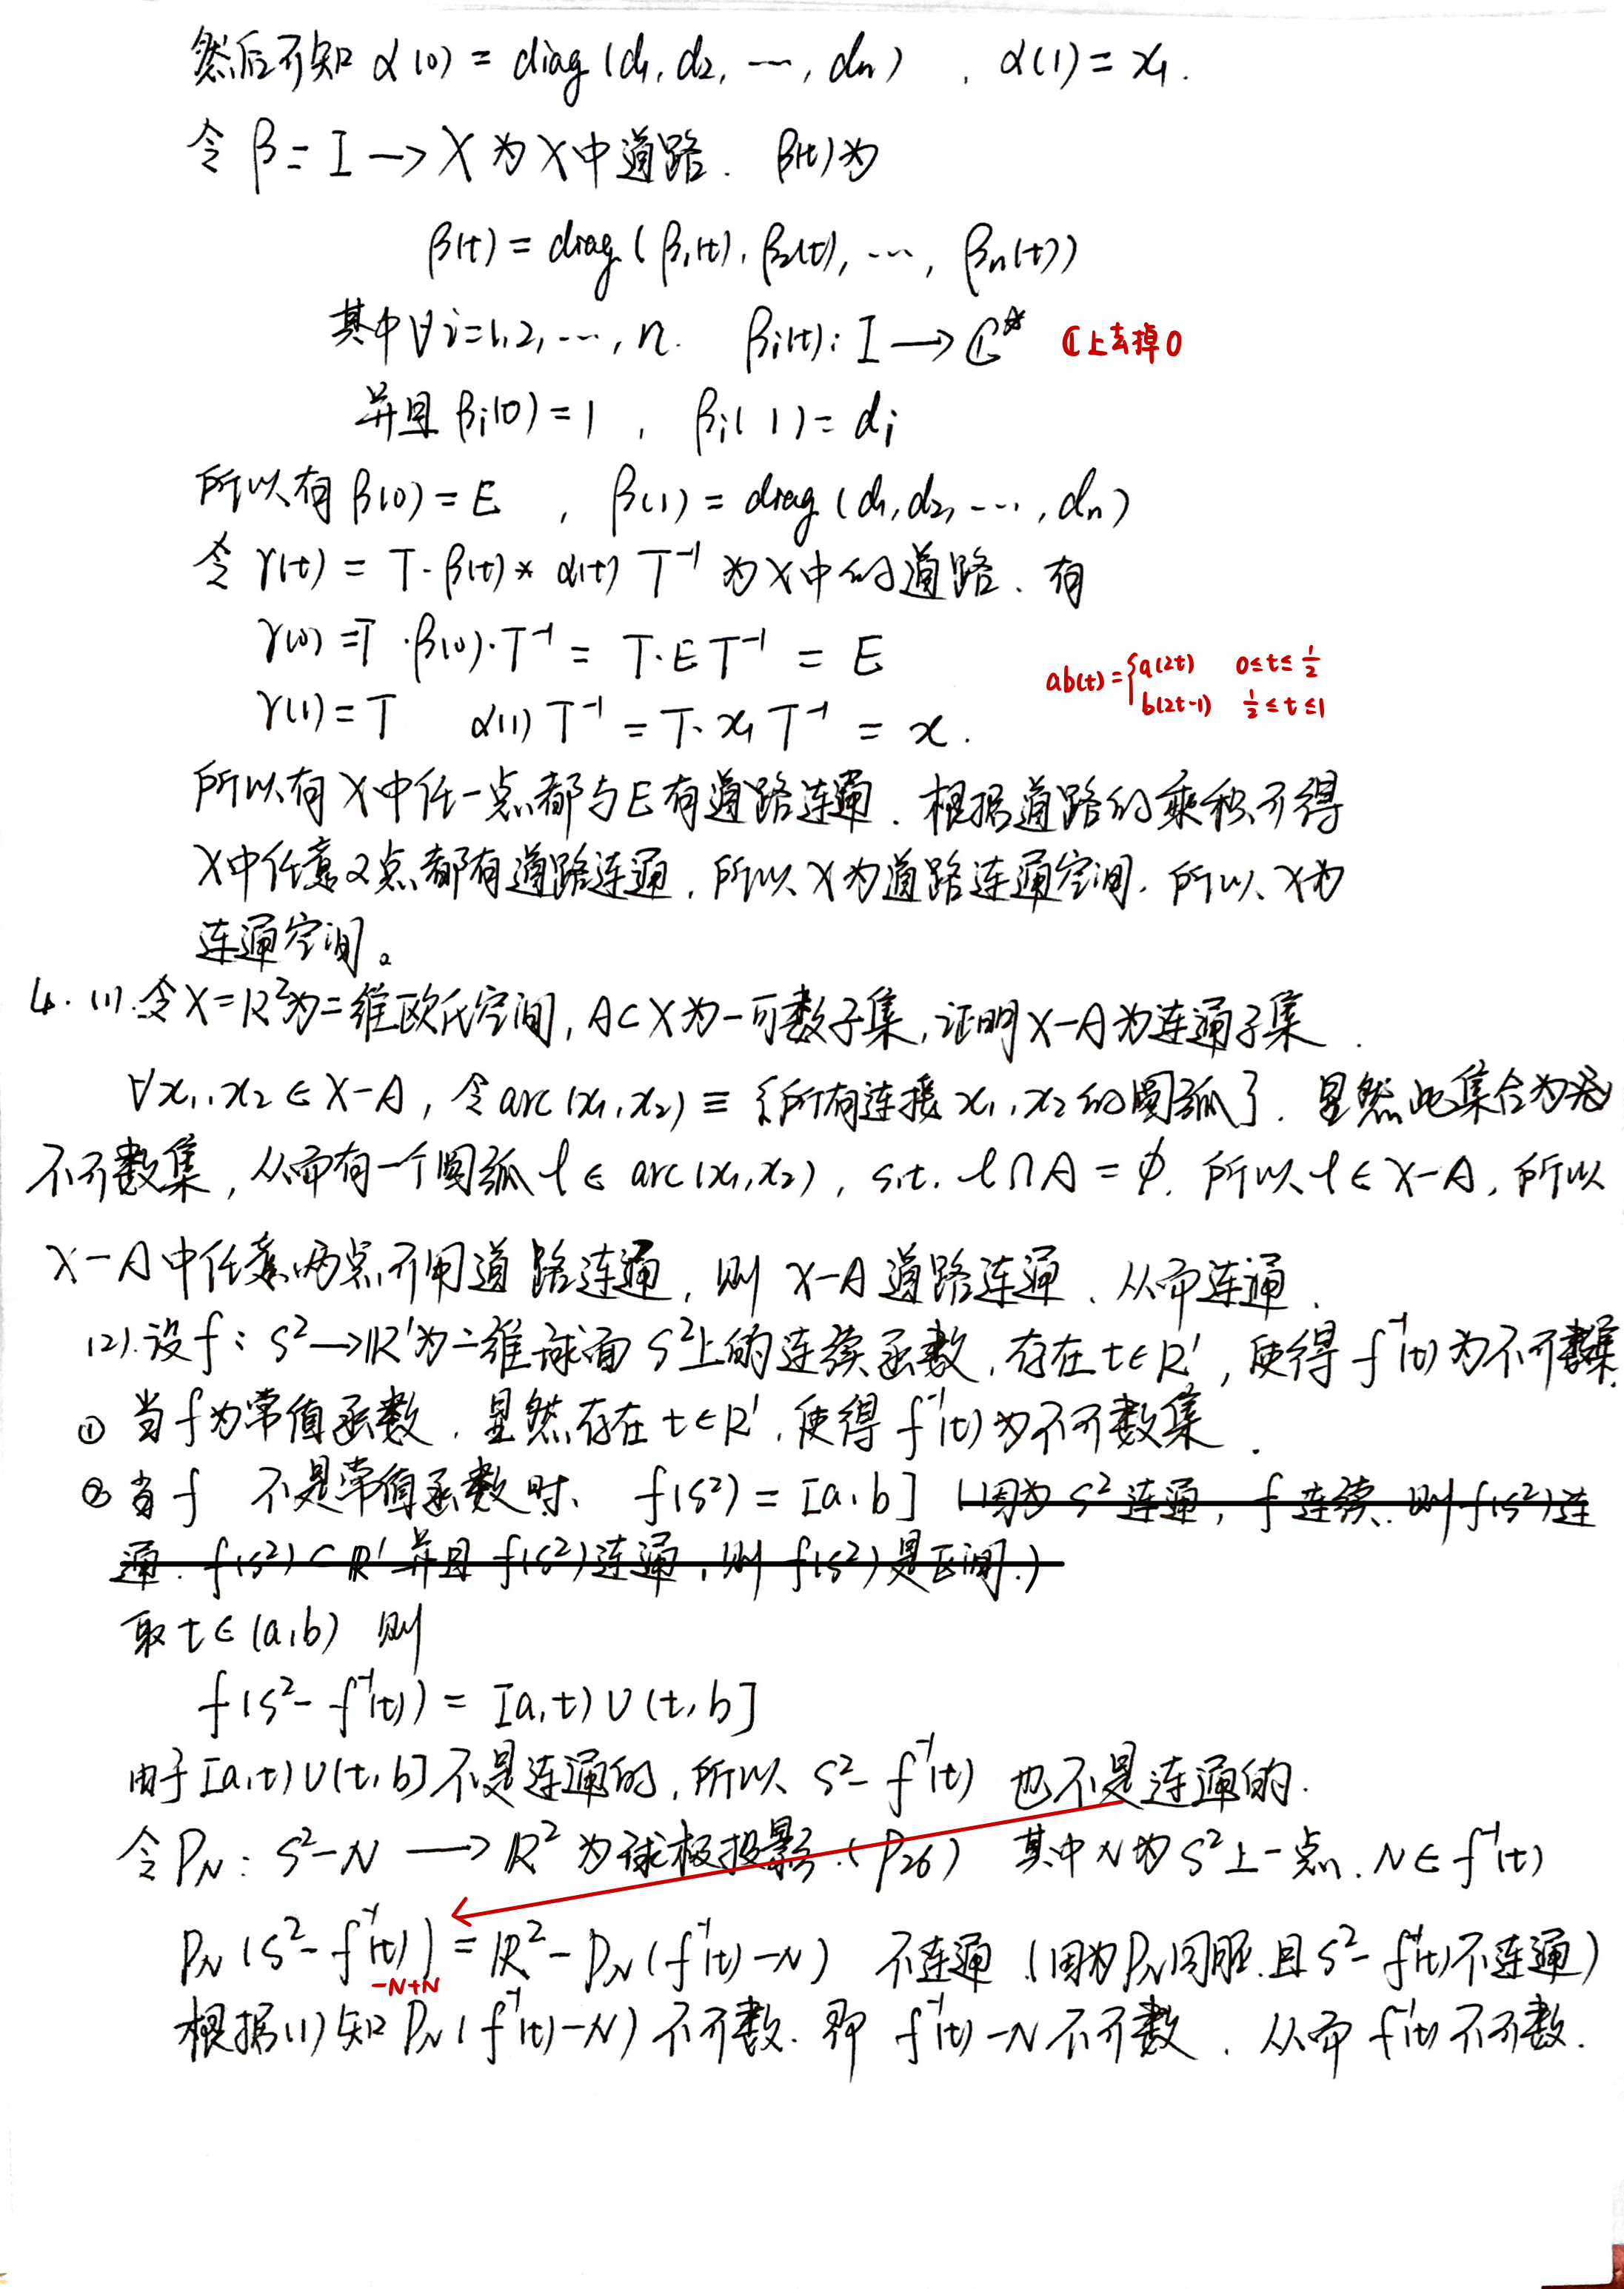 然后可知 α(0) = diag(d₁, d₂, ⋯, dₙ) , α(1) = x₁.
令 β = I → X 为 X 中道路. β(t)为
β(t) = diag(β₁(t), β₂(t), ⋯, βₙ(t))
其中∀i=1,2,⋯,n. βᵢ(t): I → ℂ* ℂ上去掉0
并且 βᵢ(0) = 1 , βᵢ(1) = dᵢ
所以有 β(0) = E , β(1) = diag(d₁, d₂, ⋯, dₙ)
令 γ(t) = T·β(t) * α(t) T⁻¹ 为X中的道路. 有
γ(0) = T·β(0)·T⁻¹ = T·E T⁻¹ = E
ab(t) = { a(2t) 0≤t≤½
b(2t-1) ½≤t≤1
γ(1) = T α(1) T⁻¹ = T·x₁ T⁻¹ = x.
所以有X中任一点都与E有道路连通. 根据道路的乘积可得
X中任意2点都有道路连通, 所以X为道路连通空间. 所以X为
连通空间。
4. (1). 令X=ℝ²为二维欧氏空间, A⊂X为一可数子集, 证明X-A为连通子集.
∀x₁, x₂ ∈ X-A, 令arc(x₁,x₂) ≡ {所有连接x₁,x₂的圆弧}. 显然此集合为
不可数集, 从而有一个圆弧 l ∈ arc(x₁,x₂), s.t. l∩A = ∅. 所以 l ∈ X-A, 所以
X-A中任意两点可用道路连通, 则 X-A道路连通. 从而连通.
(2). 设f: S²→ℝ¹为二维球面S²上的连续函数, 存在t∈ℝ¹, 使得f⁻¹(t)为不可数集.
① 当f为常值函数. 显然存在t∈ℝ¹, 使得f⁻¹(t)为不可数集.
② 当f 不是常值函数时. f(S²) = [a,b] (因为S²连通, f连续. 则f(S²)连
通. f(S²)⊂ℝ¹并且f(S²)连通, 则f(S²)是区间.)
取t∈(a,b) 则
f(S²-f⁻¹(t)) = [a,t)∪(t,b]
由于[a,t)∪(t,b]不是连通的, 所以 S²-f⁻¹(t) 也不是连通的.
令P_N: S²-N → ℝ²为球极投影.(P₂₆) 其中N为S²上一点. N∈f⁻¹(t)
P_N(S²-f⁻¹(t)) = ℝ²-P_N(f⁻¹(t)-N) 不连通 (因为P_N同胚. 且S²-f⁻¹(t)不连通)
-N+N
根据(1)知P_N(f⁻¹(t)-N)不可数. 即 f⁻¹(t)-N不可数. 从而f⁻¹(t)不可数.